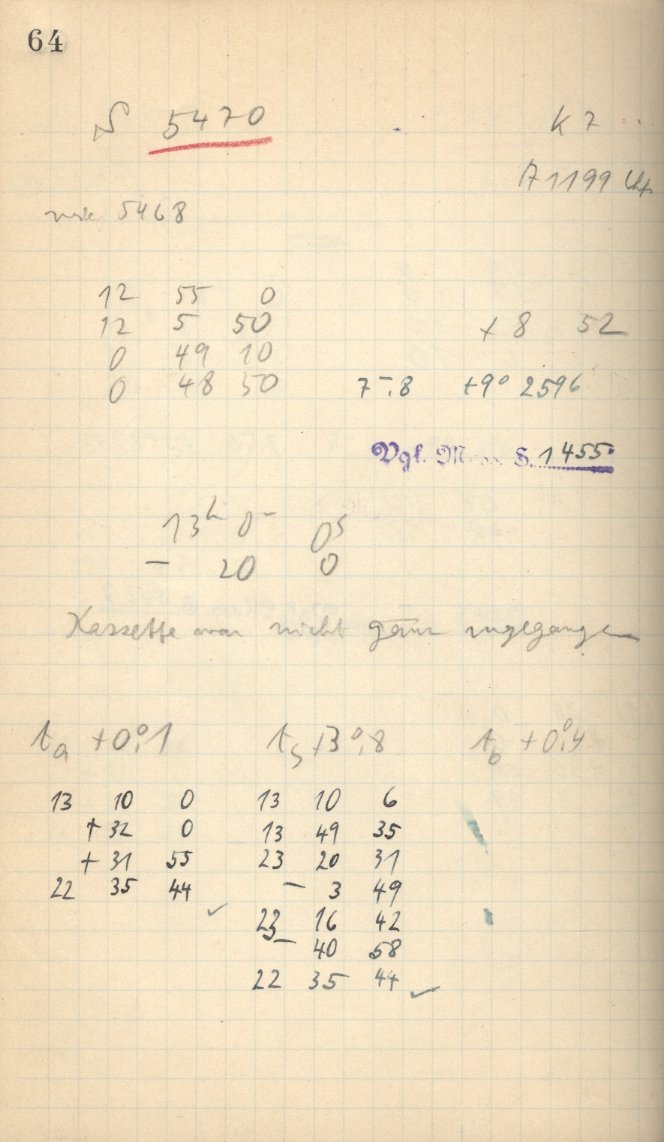 64
S 5470 K 7
A 1199
wie 5468
12 55 0
12 5 50 + 8 52
0 49 10
0 48 50 7–,8 +9° 2596
Vgl. S. 1455
13h 0– 0s
– 20 0
Kassette war nicht ganz zugegangen
ta +0°,1 ts +3°,8 tb +0°,4
13 10 0 13 10 6
+ 32 0 13 49 35
+ 31 55 23 20 31
22 35 44 – 3 49
✓ 23 16 42
– 40 58
22 35 44 ✓